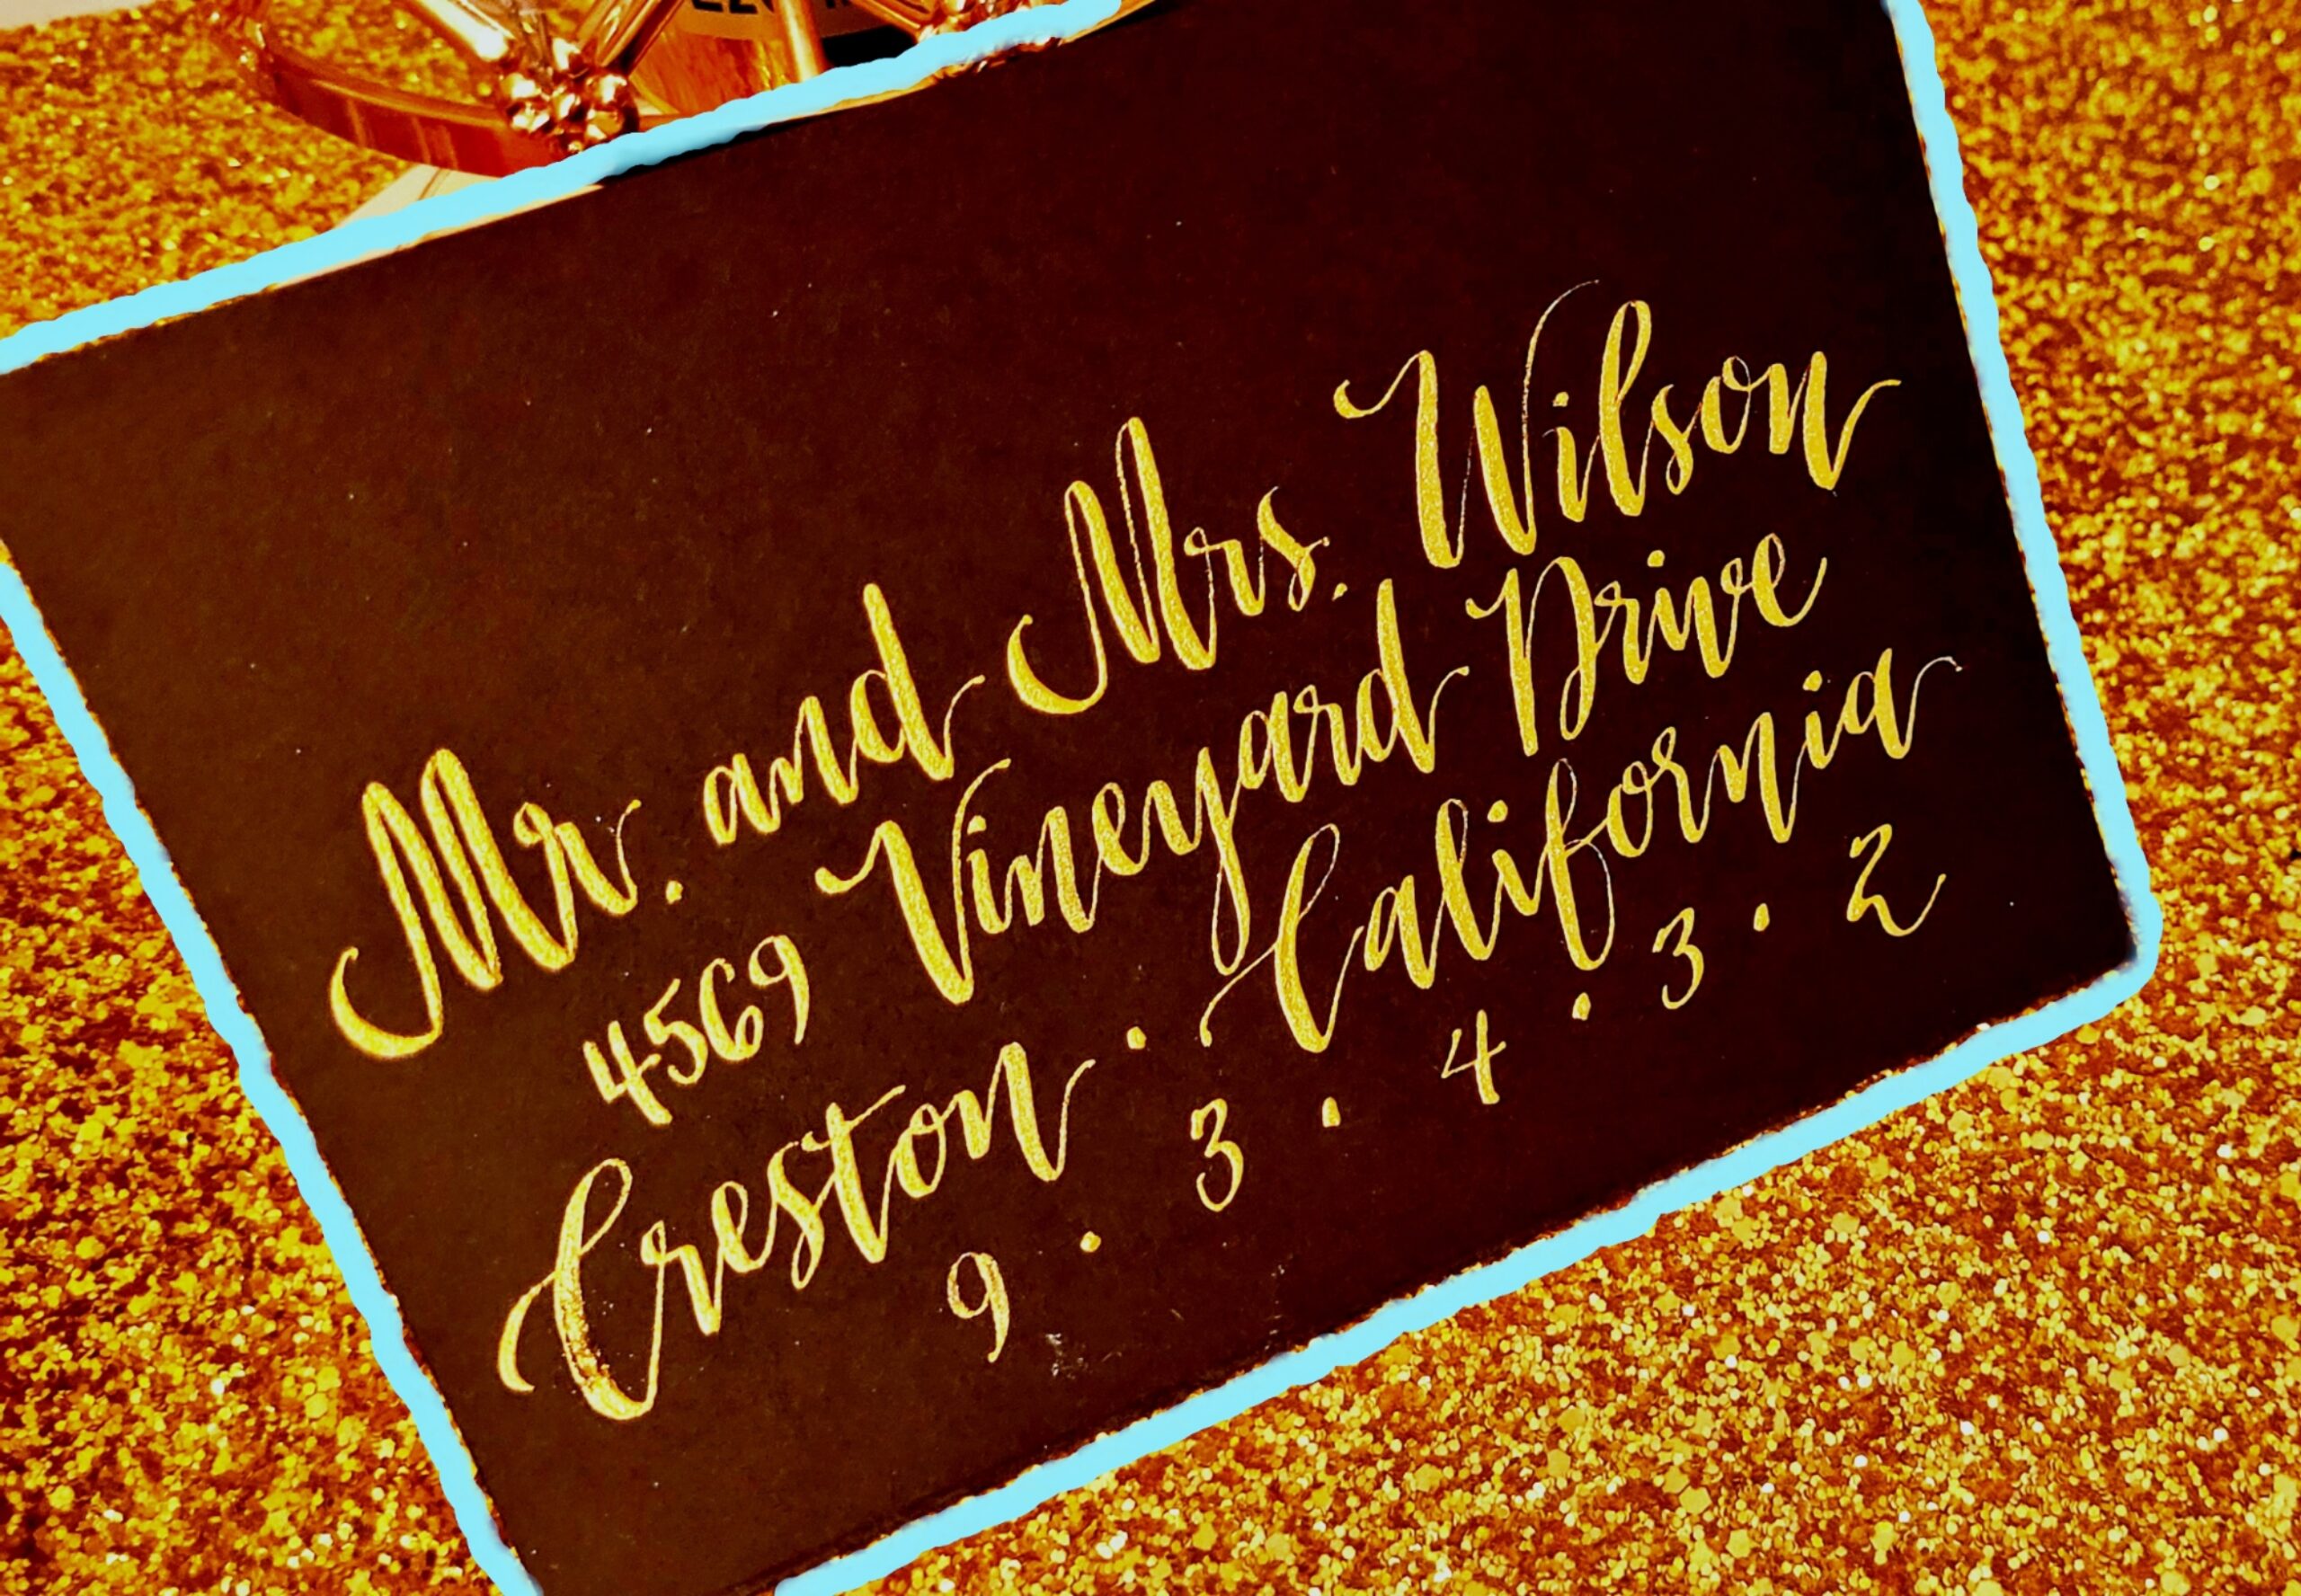 Mr. and Mrs. Wilson
4569 Vineyard Drive
Creston · California
9 · 3 · 4 · 3 · 2